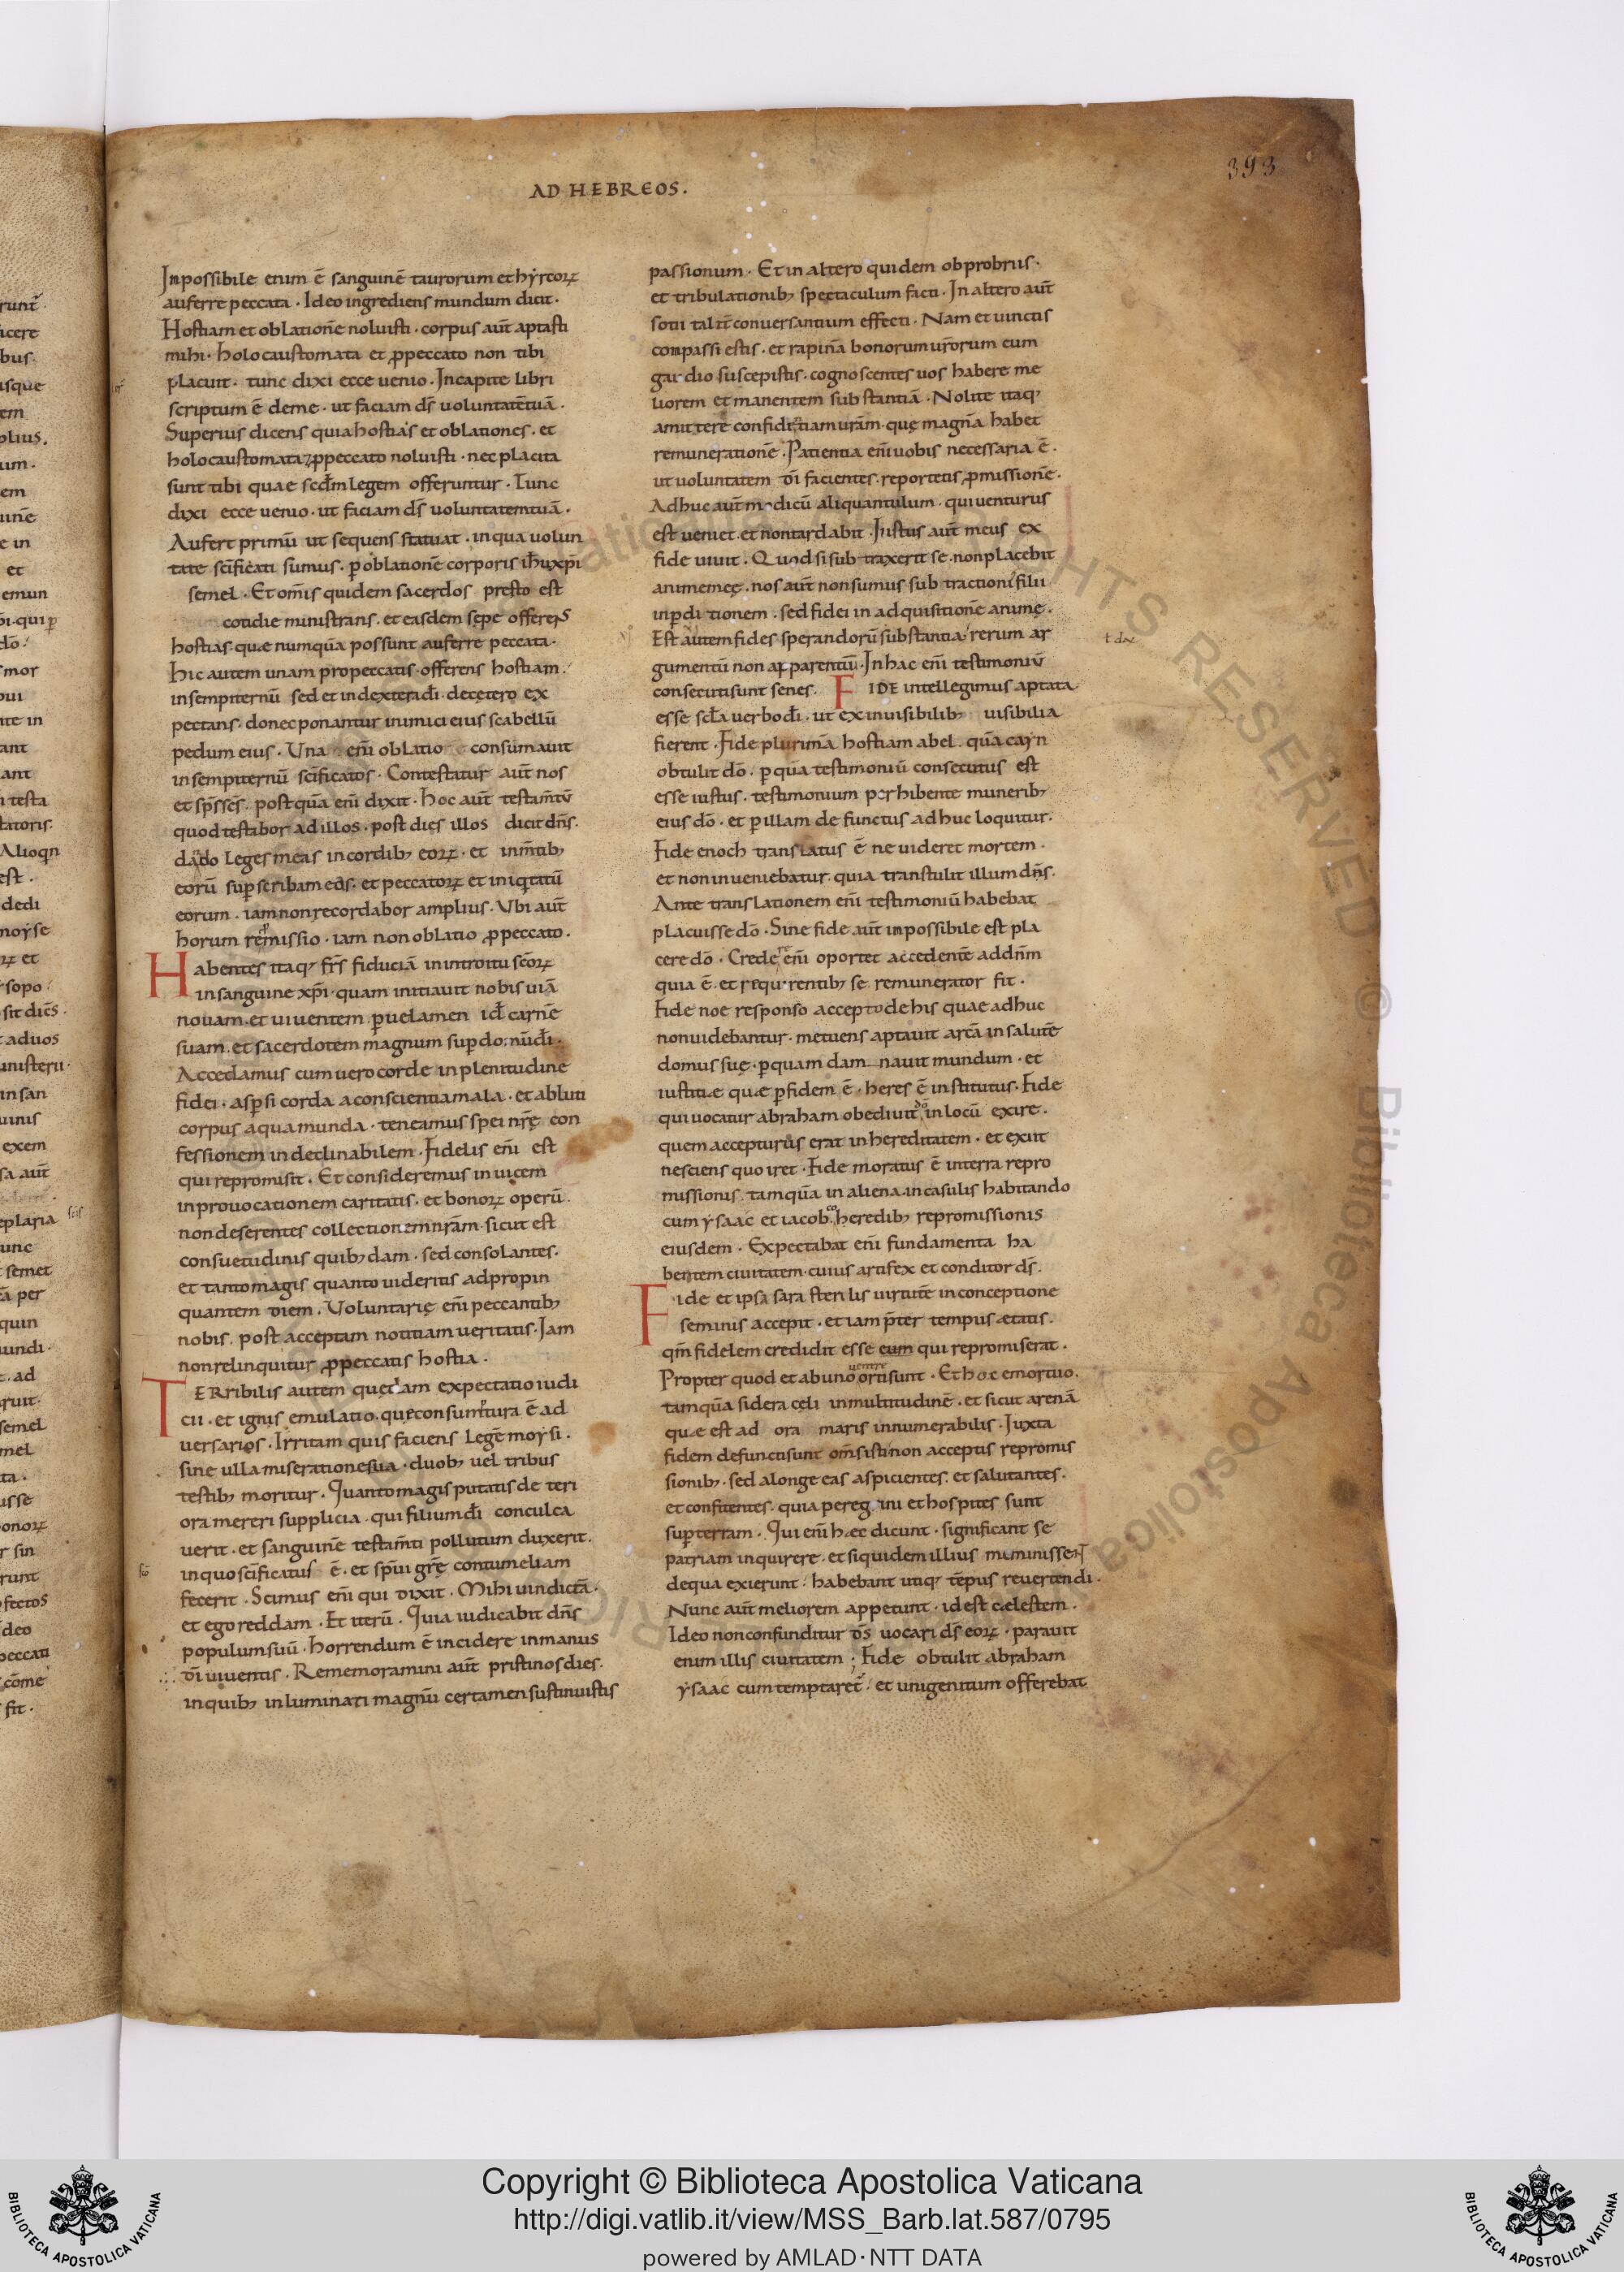 393
AD HEBREOS.
Inpossibile enim ē sanguinē taurorum et hyrcoꝝ
auferre peccata. Ideo ingrediens mundum dicit.
Hostiam et oblationē noluisti. corpus aūt aptasti
mihi. holocaustomata et ꝓpeccato non tibi
placuit. tunc dixi ecce uenio. Incapite libri
scriptum ē deme. ut faciam dś uoluntatētuā.
Superius dicens quiahostias et oblationes. et
holocaustomata ⁊ ꝓpeccato noluisti. nec placita
sunt tibi quae scđmlegem offeruntur. Tunc
dixi ecce uenio. ut faciam dś uoluntatemtuā.
Aufert primū ut sequens statuat. inqua uolun
tate scīficati sumus. ꝑoblationē corporis ih̄uxp̄i
semel. Et om̄s quidem sacerdos presto est
cotidie ministrans. et easdem sepe offerens
hostias. quæ numquā possunt auferre peccata.
hic autem unam propeccatis. offerens hostiam.
insempiternū sed et indexteradī. decętero ex
pectans. donec ponantur inimici eius scabellū
pedum eius. Una enī oblatio consumauit
insempiternū scīficatos. Contestatur aūt nos
et sp̄sses. postquā enī dixit. hoc aūt testam̄tū
quodtestabor adillos. post dies illos dicit dn̄s.
dādo leges meas incordibꝫ eoꝝ. et inm̄tibꝫ
eorū suꝑscribam eas. et peccatoꝝ et iniqtatū
eorum. iamnonrecordabor amplius. Ubi aūt
horum remissio. iam non oblatio ꝓpeccato.
Habentes itaqꝫ fr̄s fiduciā inintroitu sc̄oꝝ
insanguine xp̄i. quam initiauit nobis uiā
nouam. et uiuentem ꝑuelamen id̄ carnē
suam. et sacerdotem magnum suꝑdomūdī.
Accedamus cumuero corde inplenitudine
fidei. asꝑsi corda aconscientiamala. et abluti
corpus aquamunda. teneamus spei nr̄ę con
fessionem indeclinabilem. Fidelis enī est
quirepromisit. Et consideremus inuicem
inprouocationem caritatis. et bonoꝝ operū.
nondeserentes collectionemnr̄am. sicut est
consuetudinis quibꝫdam. sed consolantes.
et tantomagis quanto uideritis adpropin
quantem diem. Uoluntarię enī peccantibꝫ
nobis. post acceptam notitiam ueritatis. Iam
nonrelinquitur ꝓpeccatis hostia.
TERribilis autem quędam expectatio iudi
cii. et ignis emulatio. quęconsumtura ē ad
uersarios. Irritam quis faciens legē moysi.
sine ulla miserationesua. duobꝫ uel tribus
testibꝫ moritur. Quantomagis putatis de teri
ora mereri supplicia. qui filiumdī conculca
uerit. et sanguinē testam̄ti pollutum duxerit.
inquoscīficatus ē. et sp̄ui gr̄ę contumeliam
fecerit. Scimus enī qui dixit. Mihi uindictā.
et ego reddam. Et iterū. Quia iudicabit dn̄s
populumsuū. horrendum ē incidere inmanus
dī uiuentis. Rememoramini aūt pristinosdies.
inquibꝫ inluminati magnū certamen sustinuistis
passionum. Et in altero quidem obprobriis.
et tribulationibꝫ spectaculum facti. In altero aūt
sotii talit̄ conuersantium effecti. Nam et uinctis
compassi estis. et rapinā bonorum ur̄orum cum
gaudio suscepistis. cognoscentes uos habere me
liorem et manentem substantiā. Nolite itaqꝫ
amittere confidētiamur̄am. quę magnā habet
remunerationē. Patientia enī uobis necessaria ē.
ut uoluntatem dī facientes. reportetis ꝓmissionē.
Adhuc aūt modicū aliquantulum. quiuenturus
est ueniet. et nontardabit. Iustus aūt meus ex
fide uiuit. Quodsisubtraxerit se. nonplacebit
animemeę. nos aūt nonsumus subtractionis filii
inꝑditionem. sed fidei in adquisitionē animę.
Est autem fides sperandorū substantia rerum ar
gumentū non apparentiū. In hac enī testimoniū
consecutisunt senes. FIDE intellegimus aptata
esse scl̄a uerbodī. ut ex inuisibilibꝫ uisibilia
fierent. Fide plurimā hostiam abel. quā cayn
obtulit dō. ꝑ quā testimoniū consecutus est
esse iustus. testimonium perhibente muneribꝫ
eius dō. et ꝑillam defunctus adhuc loquitur.
Fide enoch translatus ē ne uideret mortem.
et non inueniebatur. quia transtulit illum dn̄s.
Ante translationem enī testimoniū habebat
placuisse dō. Sine fide aūt inpossibile est pla
cere dō. Credere enī oportet accedentē addn̄m
quia ē. et requirentibꝫ se remunerator fit.
Fide noe responso acceptodehis quae adhuc
nonuidebantur. metuens aptauit arcā insalutē
domus suę. ꝑquam damnauit mundum. et
iustitiæ quæ ꝑfidem ē. heres ē institutus. Fide
qui uocatur abraham obediuit in locū exire.
quem accepturus erat inhereditatem. et exiit
nesciens quo iret. Fide moratus ē interra repro
missionis. tamquā in aliena. incasulis habitando
cum ysaac et iacob. coheredibꝫ repromissionis
eiusdem. Expectabat enī fundamenta ha
bentem ciuitatem. cuius artifex et conditor dś.
Fide et ipsa sara sterilis uirtutē inconceptione
seminis accepit. et iam p̄ter tempus ætatis.
qm̄ fidelem credidit esse eum qui repromiserat.
Propter quod et abuno uentre ortisunt. Et hoc emortuo.
tamquā sidera cęli inmultitudinē. et sicut arenā
quæ est ad ora maris innumerabilis. Iuxta
fidem defunctisunt om̄s isti. non acceptis repromis
sionibꝫ. sed alonge eas aspicientes. et salutantes.
et confitentes. quia peregrini et hospites sunt
suꝑterram. Qui enī hæc dicunt. significant se
patriam inquirere. et siquidem illius meminissent
dequa exierunt. habebant utiqꝫ tēpus reuertendi.
Nunc aūt meliorem appetunt. idest cælestem.
Ideo nonconfunditur dś uocari dś eoꝝ. parauit
enim illis ciuitatem; Fide obtulit abraham
ysaac cum temptaret̄. et unigenitum offerebat
Copyright © Biblioteca Apostolica Vaticana
http://digi.vatlib.it/view/MSS_Barb.lat.587/0795
powered by AMLAD·NTT DATA
BIBLIOTECA APOSTOLICA VATICANA
BIBLIOTECA APOSTOLICA VATICANA